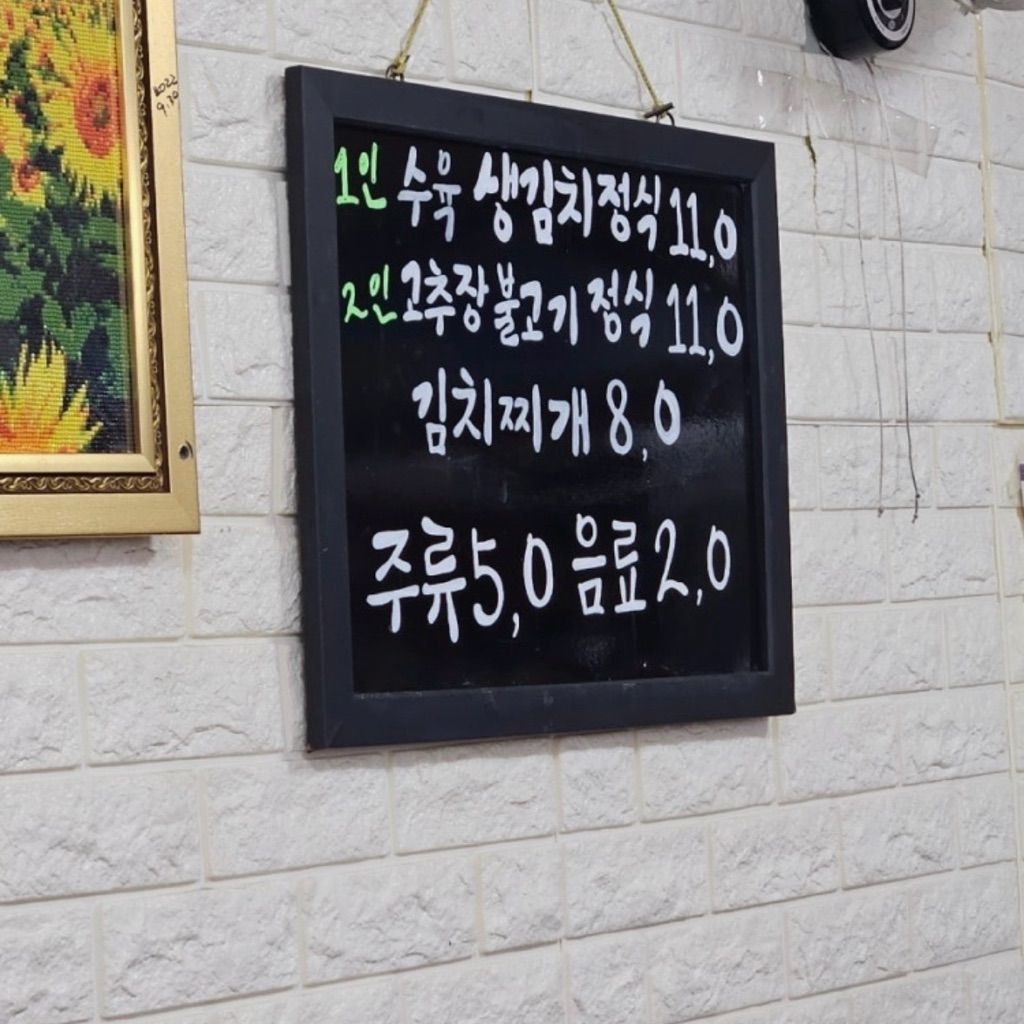 2022
9.30
1인 수육 생김치정식 11,0
2인 고추장불고기 정식 11,0
김치찌개 8,0
주류 5,0 음료 2,0